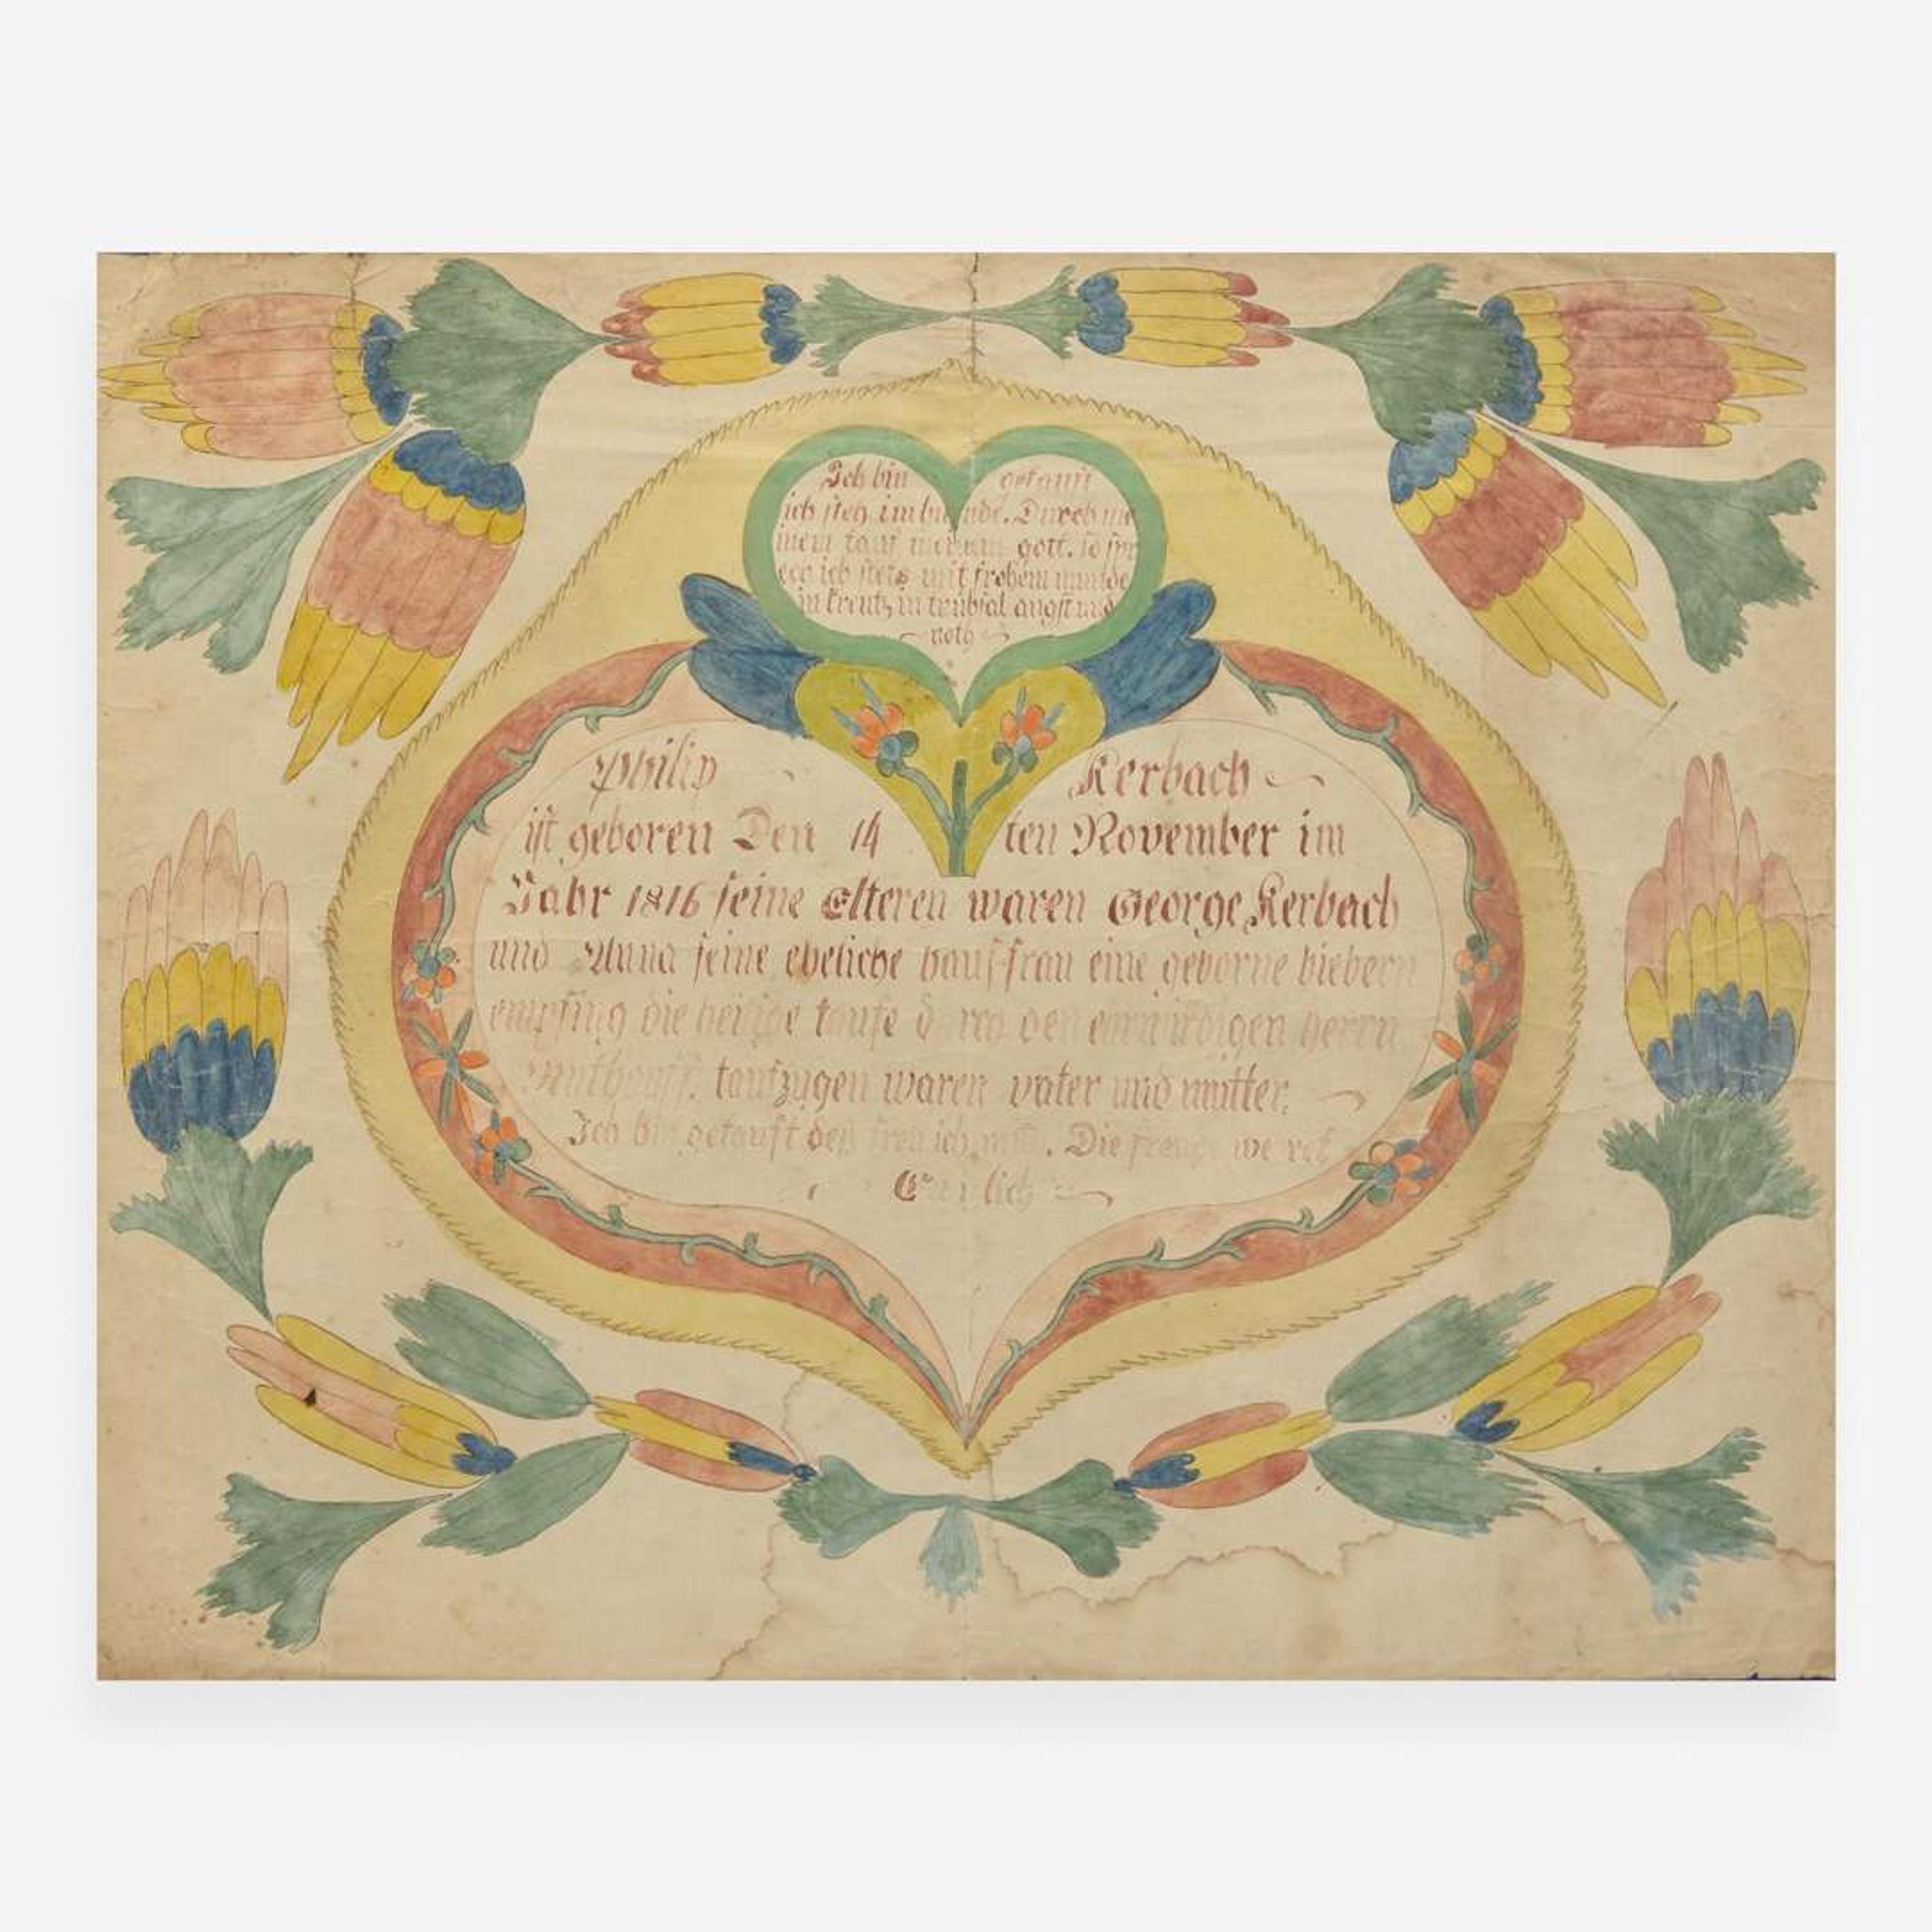 Ich bin getauft
ich steh im bunde. Durch mei
nem tauf meinem gott. so spr
ech ich stets mit frohem munde
in kreutz in trübsal angst und
noth
Philip Kerbach
ist geboren Den 14 ten November im
Jahr 1816 seine Elteren waren George Kerbach
und Anna seine eheliche haus-frau eine geborne biebern
empfing die heilige taufe durch den ehrwürdigen herrn
taufzugen waren vater und mutter.
Ich bin getauft deß freu ich mich. Die freude